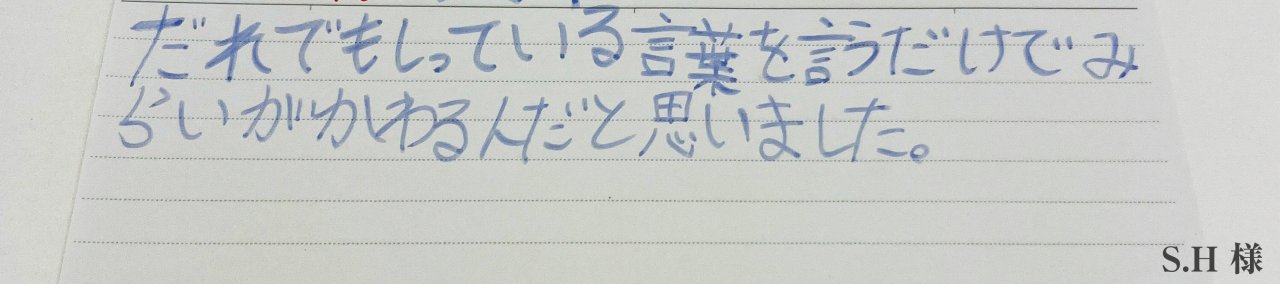 だれでもしっている言葉を言うだけでみ
らいがかわるんだと思いました。
S.H 様